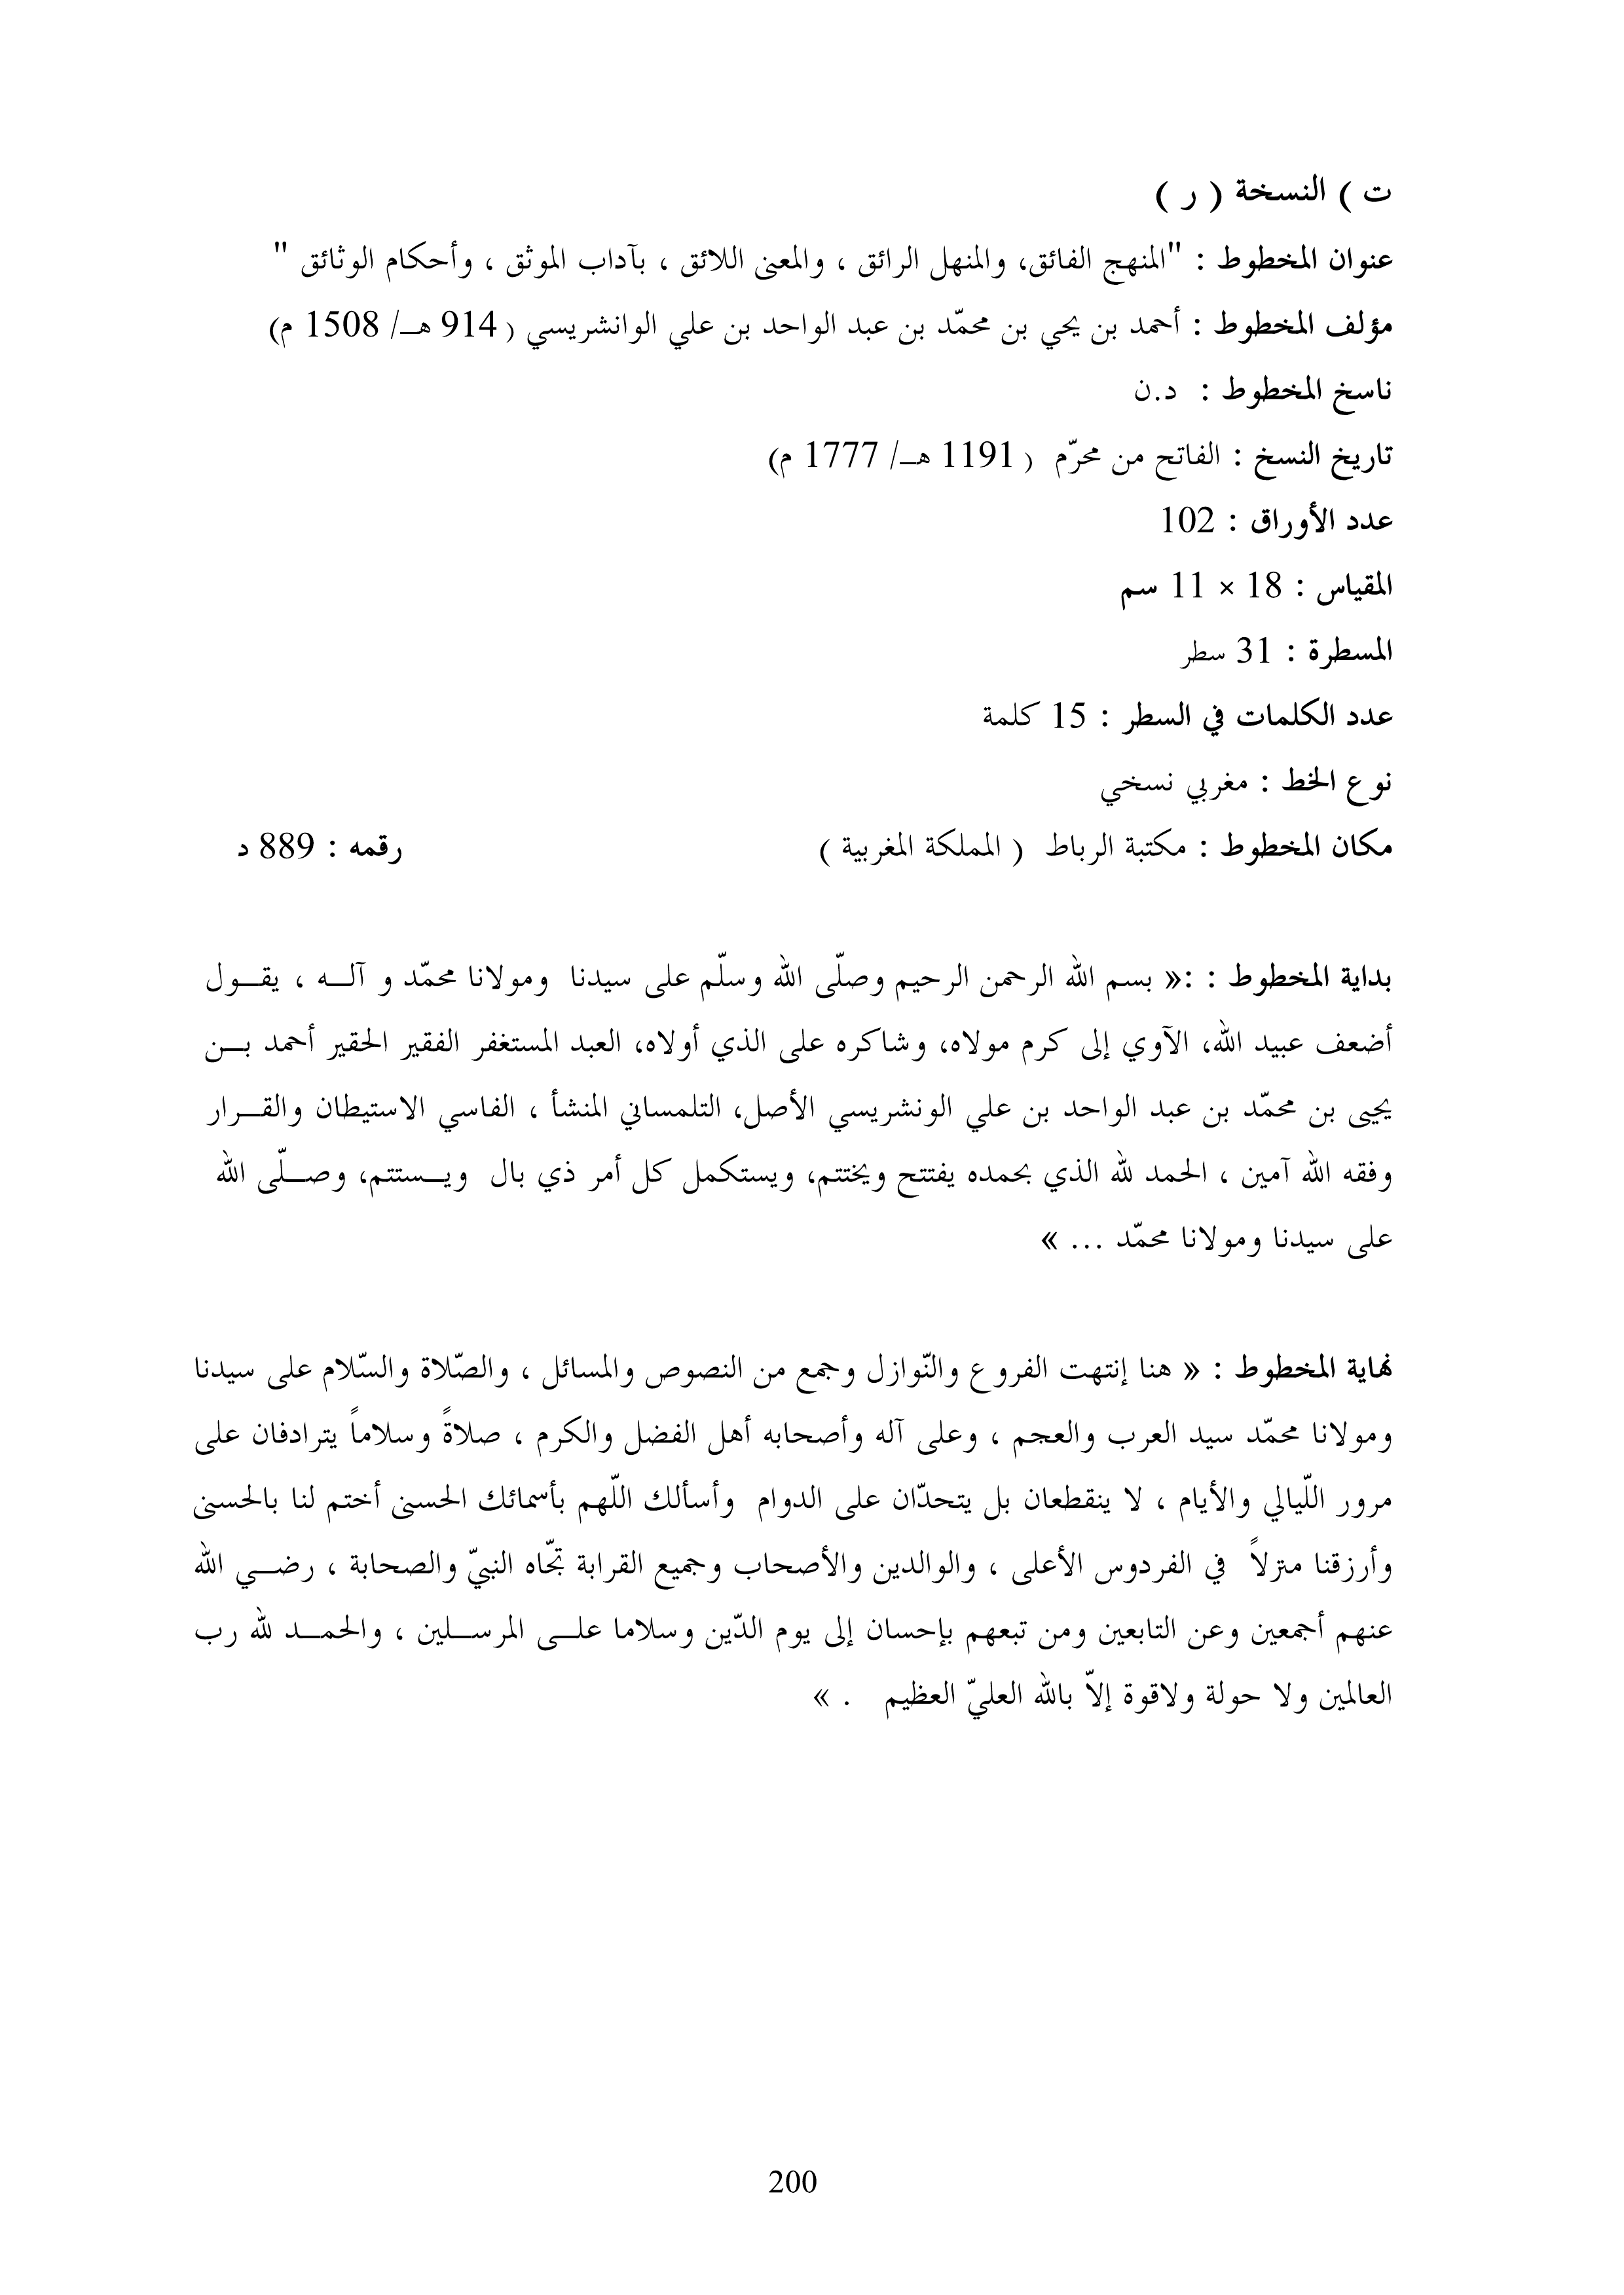 ت ) النسخة ( ر )
عنوان المخطوط : "المنهج الفائق، والمنهل الرائق ، والمعنى اللائق ، بآداب الموثق ، وأحكام الوثائق "
مؤلف المخطوط : أحمد بن يحي بن محمّد بن عبد الواحد بن علي الوانشريسي ( 914 هـ/ 1508 م)
ناسخ المخطوط : د.ن
تاريخ النسخ : الفاتح من محرّم ( 1191 هـ/ 1777 م)
عدد الأوراق : 102
المقياس : 18 × 11 سم
المسطرة : 31 سطر
عدد الكلمات في السطر : 15 كلمة
نوع الخط : مغربي نسخي
مكان المخطوط : مكتبة الرباط ( المملكة المغربية ) رقمه : 889 د
بداية المخطوط : :« بسم الله الرحمن الرحيم وصلّى الله وسلّم على سيدنا ومولانا محمّد و آله ، يقول
أضعف عبيد الله، الآوي إلى كرم مولاه، وشاكره على الذي أولاه، العبد المستغفر الفقير الحقير أحمد بن
يحيى بن محمّد بن عبد الواحد بن علي الونشريسي الأصل، التلمساني المنشأ ، الفاسي الاستيطان والقرار
وفقه الله آمين ، الحمد لله الذي بحمده يفتتح ويختتم، ويستكمل كل أمر ذي بال ويستتم، وصلّى الله
على سيدنا ومولانا محمّد ... »
نهاية المخطوط : « هنا إنتهت الفروع والنّوازل وجمع من النصوص والمسائل ، والصّلاة والسّلام على سيدنا
ومولانا محمّد سيد العرب والعجم ، وعلى آله وأصحابه أهل الفضل والكرم ، صلاةً وسلاماً يترادفان على
مرور اللّيالي والأيام ، لا ينقطعان بل يتحدّان على الدوام وأسألك اللّهم بأسمائك الحسنى أختم لنا بالحسنى
وأرزقنا منزلاً في الفردوس الأعلى ، والوالدين والأصحاب وجميع القرابة تجّاه النبيّ والصحابة ، رضي الله
عنهم أجمعين وعن التابعين ومن تبعهم بإحسان إلى يوم الدّين وسلاما على المرسلين ، والحمد لله رب
العالمين ولا حولة ولاقوة إلاّ بالله العليّ العظيم . »
200